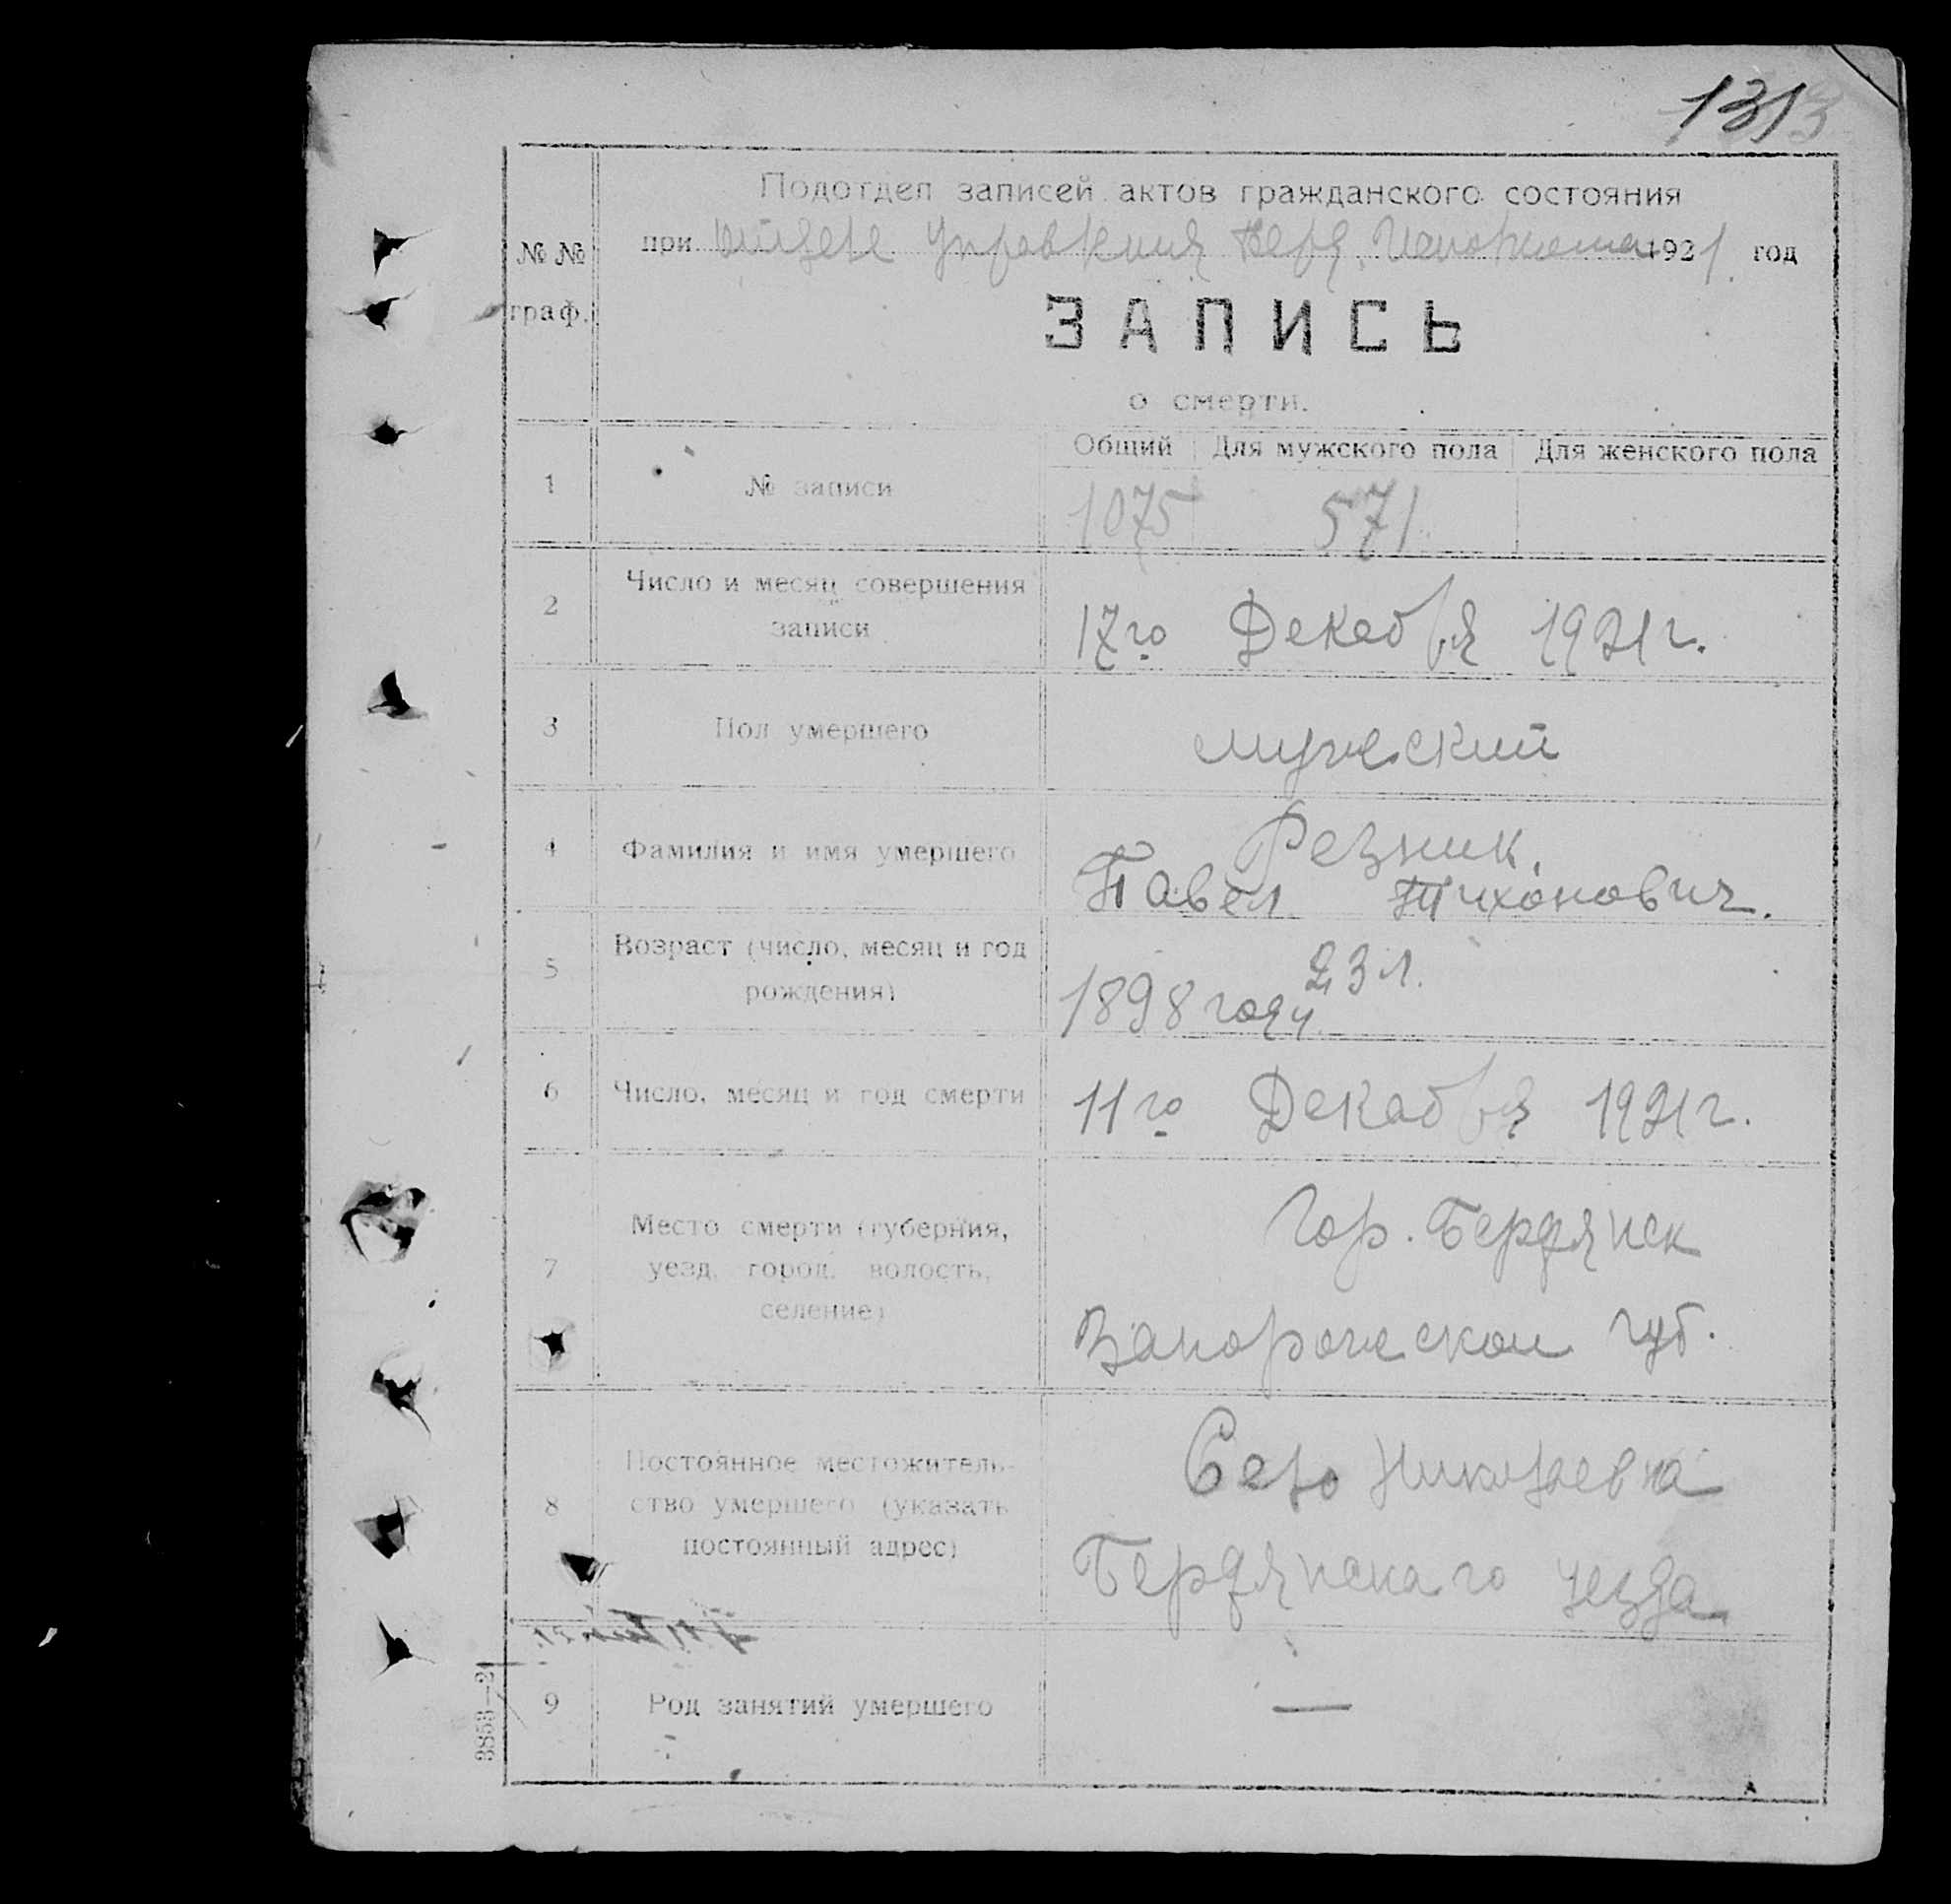 1313
Подотдел записей актов гражданского состояния
при Отделе Управления Берд. Исполкома 1921 год
№ №
граф.
ЗАПИСЬ
о смерти.
Общий Для мужского пола Для женского пола
1 № записи 1075 571
2 Число и месяц совершения
записи
17го Декабря 1921г.
3 Пол умершего мужеский
4 Фамилия и имя умершего
Резник.
Павел Тихонович.
5 Возраст (число, месяц и год
рождения)
23 л.
1898 году
6 Число, месяц и год смерти 11го Декабря 1921г.
7 Место смерти (губерния,
уезд, город, волость,
селение)
Гор. Бердянск
Запорожской губ.
8 Постоянное местожитель-
ство умершего (указать
постоянный адрес)
Село Николаевка
Бердянскаго уезда
9 Род занятий умершего —
3853—21